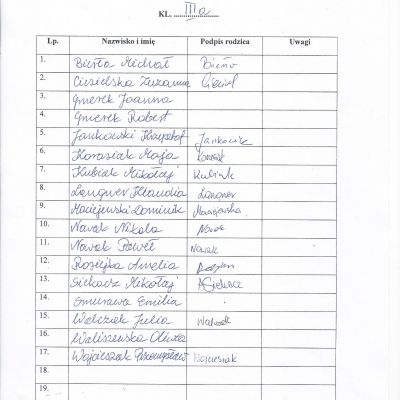 KL. IIIa
Lp. Nazwisko i imię Podpis rodzica Uwagi
1. Bierła Michał
2. Ciesielska Zuzanna
3. Gmerek Joanna
4. Gmerek Robert
5. Jankowski Krzysztof
6. Korasiak Maja
7. Kubiak Mikołaj Kubiak
8. Langner Klaudia Langner
9. Maciejewski Dominik Maciejewska
10. Nowak Nikola Nowak
11. Nowak Paweł Nowak
12. Rozejka Amelia
13. Siekacz Mikołaj
14. Smurawa Emilia
15. Walczak Julia Walczak
16. Waliszewska Oliwia
17. Wojcieszak Przemysław Wojcieszak
18.
19.